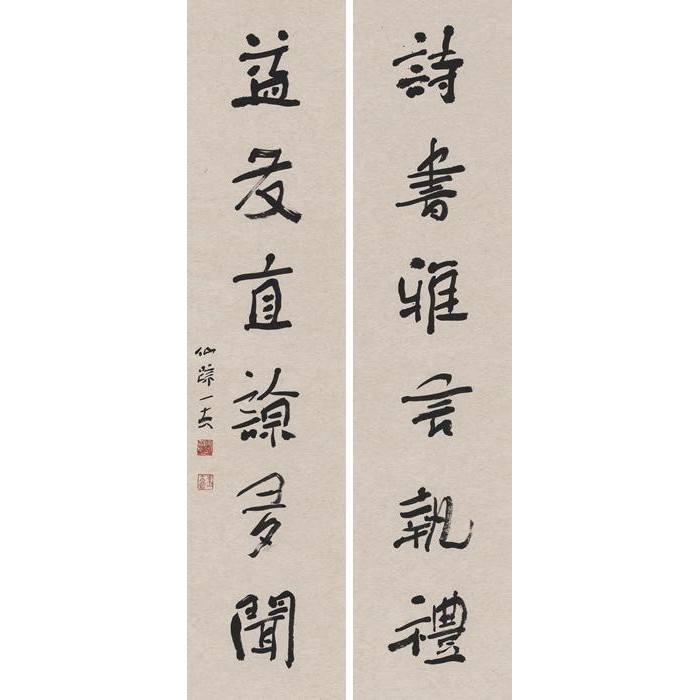 詩書雅言執禮
益友直諒多聞
仙蹤一